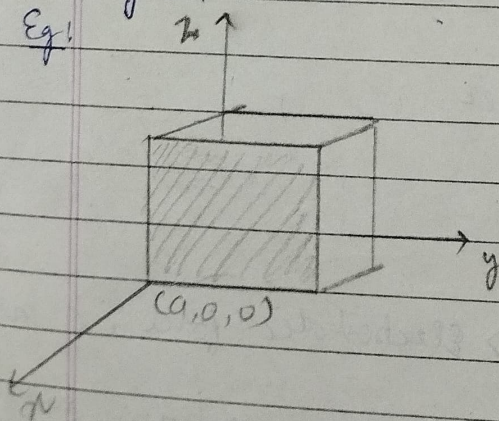 Eg:
z
y
(a,0,0)
x